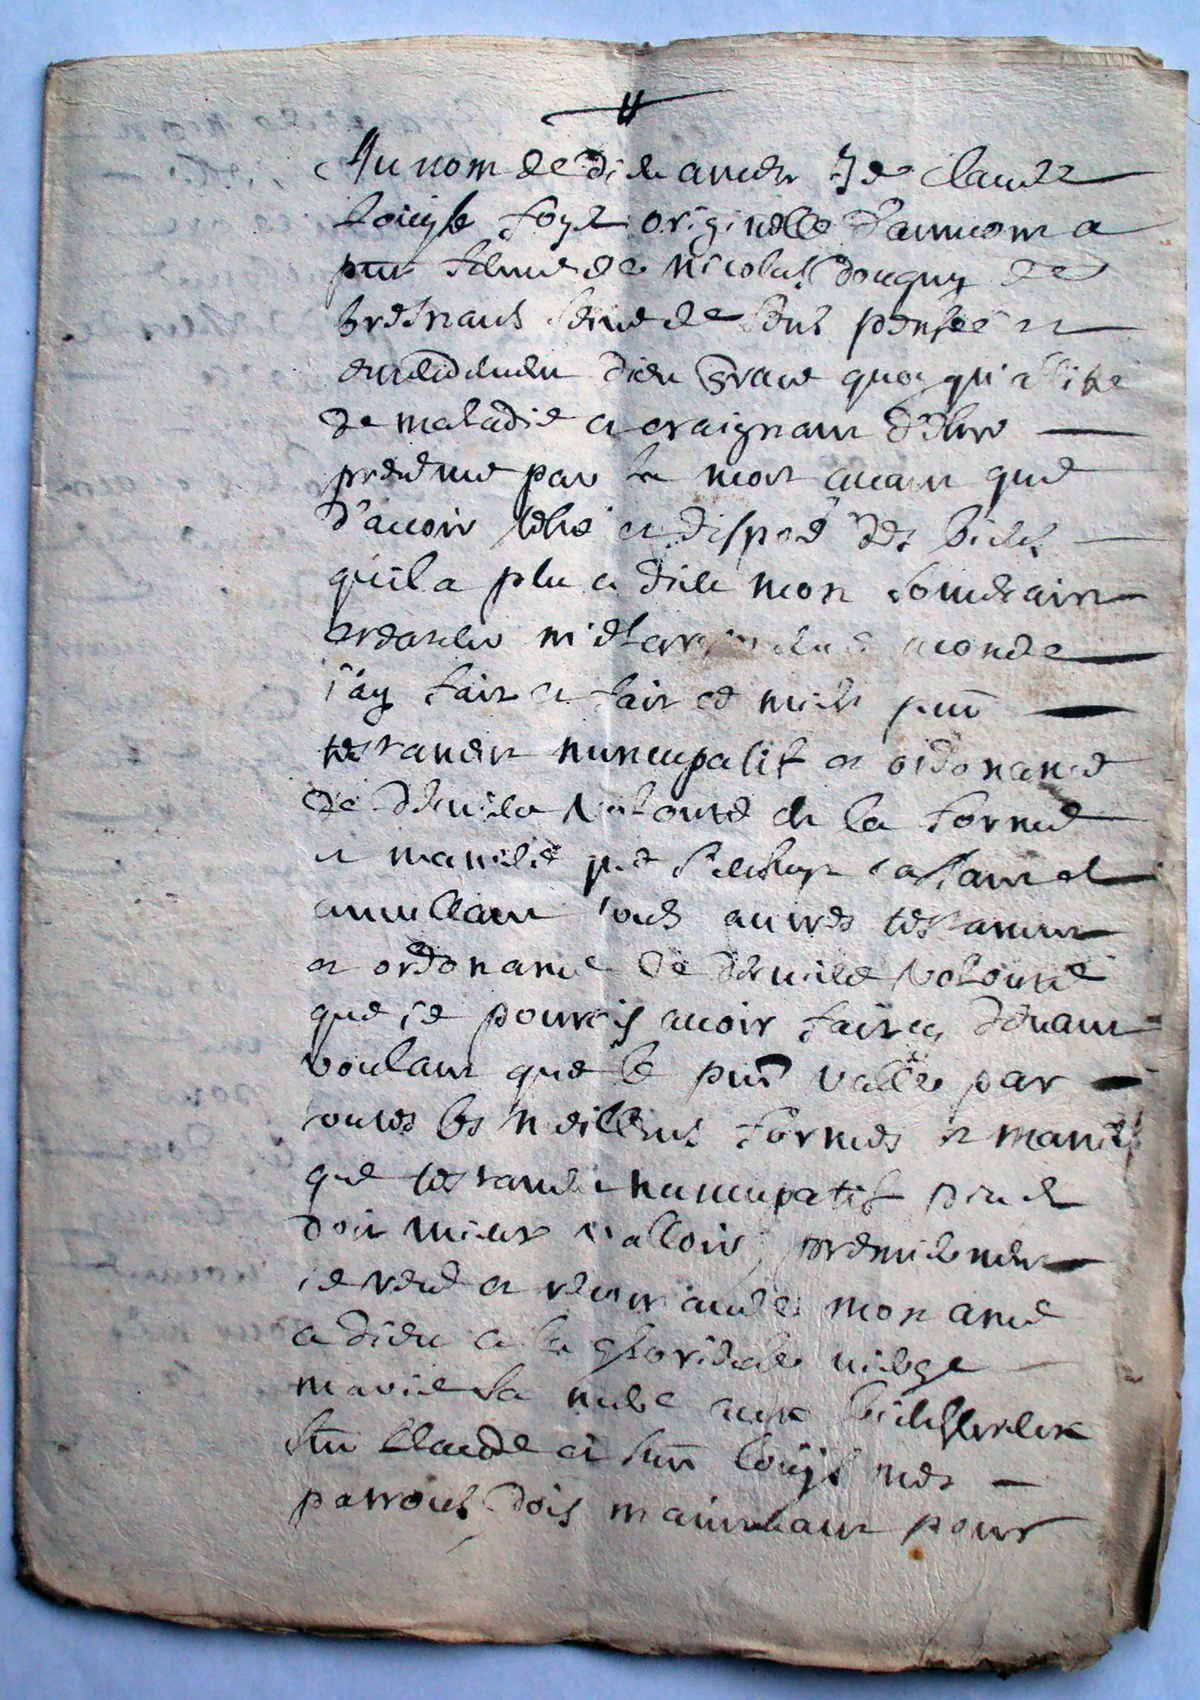 Au nom de dieu amen Je Claude
Louyse foyl originelle d'annom a
pnt femme de Nicolas douguy de
saine de sens pensée et
entendement dieu grace quoy qu'
de maladie et craignant d'estre
prevenue par la mort avant que
d'avoir testé et disposé des biens
qu'il a plu a dieu mon souverain
createur m'eslargir en ce monde
j'ay fait et fait ce mien pnt
testament nuncupatif et ordonance
de derniere volonté en la forme
et maniere que s'ensuyt cassant et
annullant tous autres testament
et ordonance de derniere volonté
que je pourois avoir fait cy devant
voulant que le pnt valle par
toutes les meilleurs formes et maniere
que testament nuncupatif peut et
doit mieux valloir, premierement
je rend et recommande mon ame
a dieu a la glorieuse vierge
marie sa mere aux bienheureux
snt Claude et snt louys mes
patrons dois maintenant pour